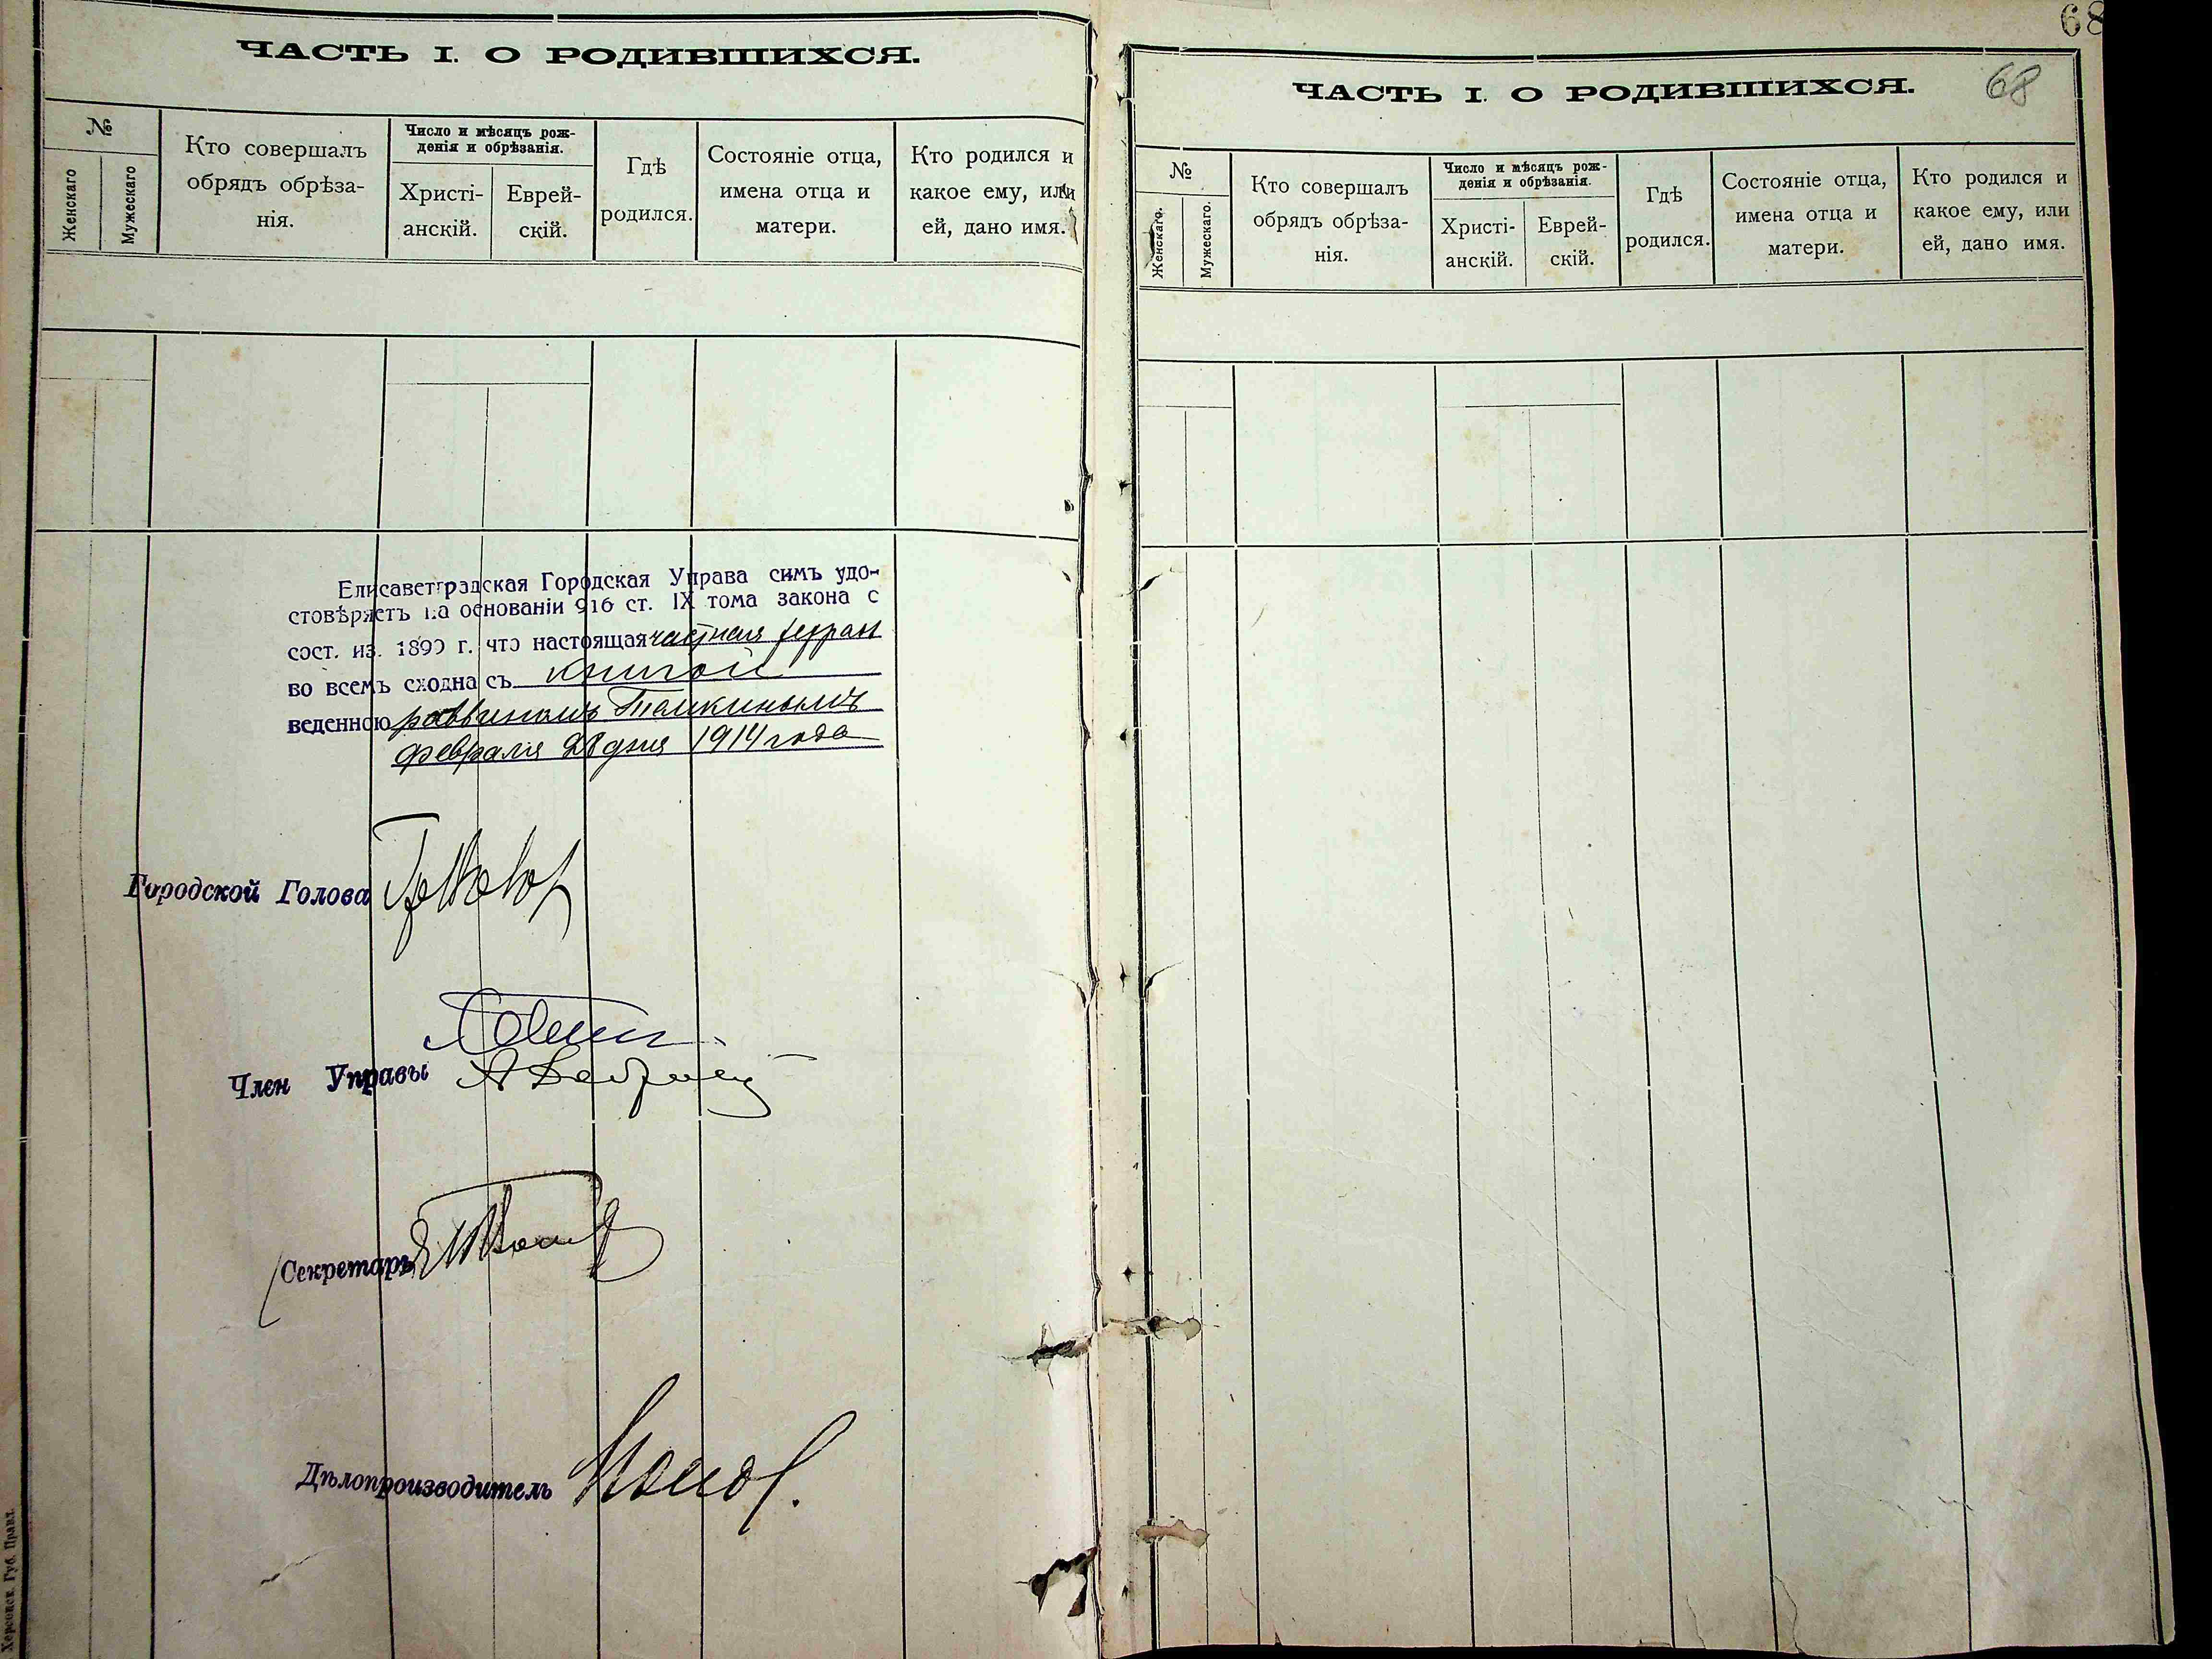 ЧАСТЬ I. О РОДИВШИХСЯ.
№
Женскаго
Мужескаго
Кто совершалъ
обрядъ обрѣза-
нія.
Число и мѣсяцъ рож-
денія и обрѣзанія.
Христі-
анскій.
Еврей-
скій.
Гдѣ
родился.
Состояніе отца,
имена отца и
матери.
Кто родился и
какое ему, или
ей, дано имя.
Елисаветградская Городская Управа симъ удо-
стовѣряетъ на основаніи 916 ст. IX тома закона с
сост. из. 1899 г. что настоящая частная
во всемъ сходна съ книгой
веденною раввиномъ
февраля 28 дня 1914 года
Городской Голова
Член Управы
Секретарь
Дѣлопроизводитель
Херсонск. Губ. Правл.
68
68
ЧАСТЬ I. О РОДИВШИХСЯ.
№
Женскаго.
Мужескаго.
Кто совершалъ
обрядъ обрѣза-
нія.
Число и мѣсяцъ рож-
денія и обрѣзанія.
Христі-
анскій.
Еврей-
скій.
Гдѣ
родился.
Состояніе отца,
имена отца и
матери.
Кто родился и
какое ему, или
ей, дано имя.